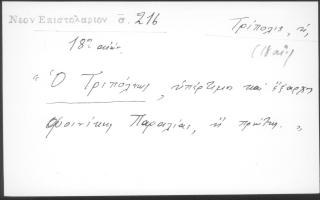 Νέον Ἐπιστολάριον σ. 216
Τρίπολις, ἡ,
18ος αἰών.
(18 αἰ)
“ Ὁ Τριπόλεως, ὑπέρτιμος καὶ ἔξαρχος
Φοινίκης Παραλίας, ὁ πρῶτος. „